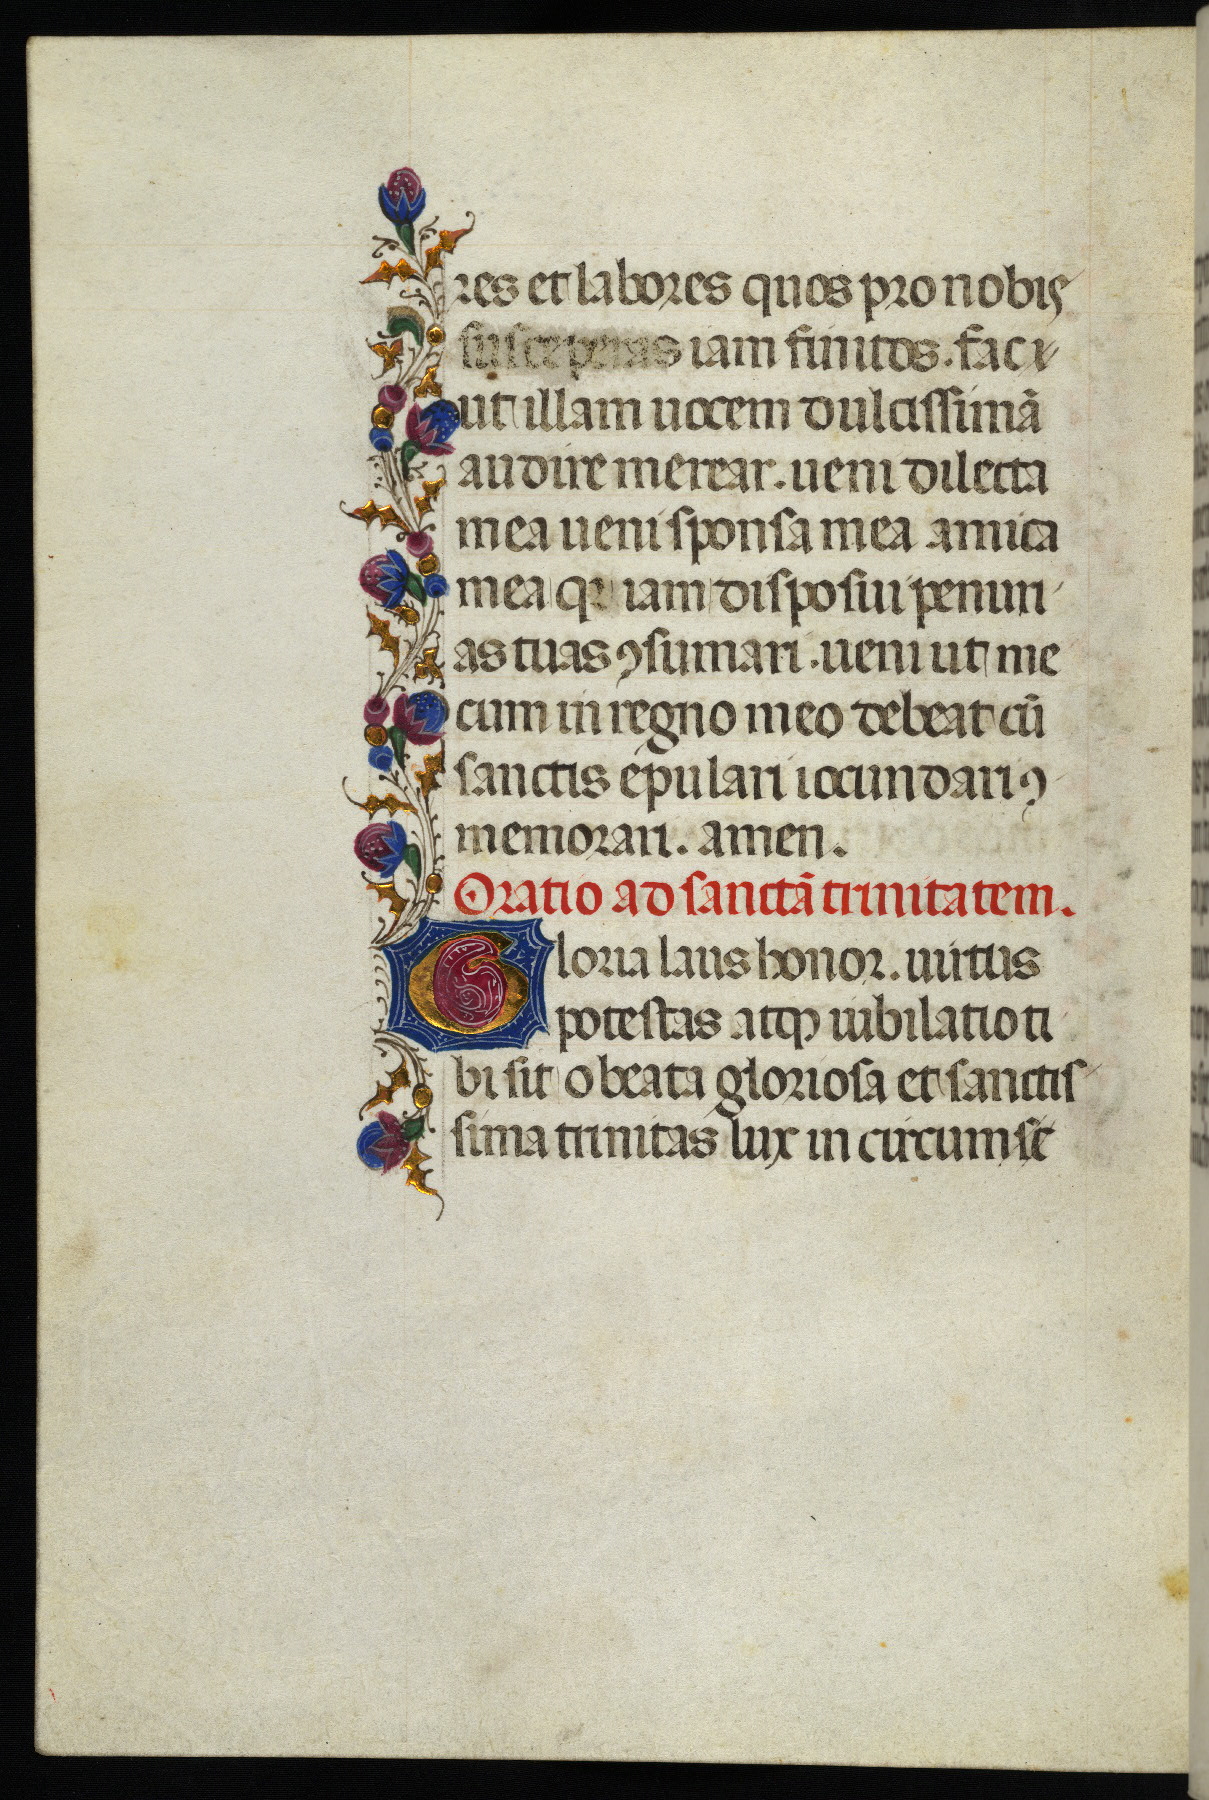 res et labores quos pro nobis
susceperas iam finitos. fac
ut illam uocem dulcissimā
audire merear. ueni dilecta
mea ueni sponsa mea amica
mea qꝛ iam disposui penuri
as tuas ꝯsumari. ueni ut me
cum in regno meo debeat cū
sanctis epulari iocundari ꝯ
memorari. amen.
Oratio ad sanctā trinitatem.
Gloria laus honor. uirtus
potestas atqꝫ iubilatio ti
bi sit o beata gloriosa et sanctis
sima trinitas lux in circumsc